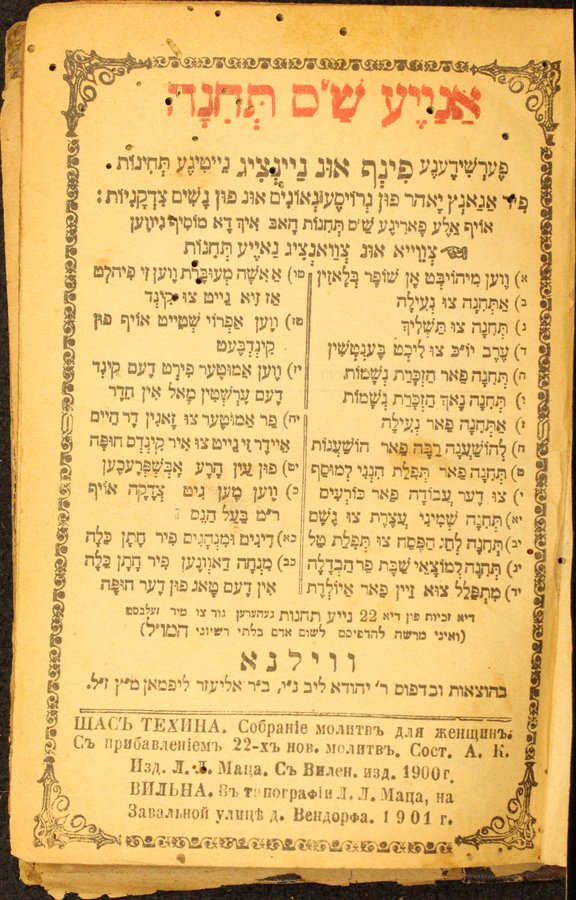 אַנַיֶיע שַׁ״ס תְּחִנָה
פֶערְשִׁידֶענֶע פִינְף אוּנ נַיינְצִיג נֵייטִיגֶע תְּחִינוֹת
פִיר אַגַאנְץ יָאהר פוּן גְרוֹיסֶע גְאוֹנִים אוּנ פוּן נָשִׁים צִדְקָנִיוֹת :
אוֹיף אַלֶע פָארִיגֶע שַׁ״ס תְּחִנוֹת הָאבּ אִיךְ דָא מוֹסִיף גִיוֶוען
צְוֵוייא אוּנ צְוַואנְצִיג נַאיֶיע תְּחִנוֹת
א) וֶוען מִיהוֹיבְּט אָן שׁוֹפָר בְּלָאזִין
ב) אַתְּחִנָה צוּ נְעִילָה
ג) תְּחִנָה צוּ תַּשְׁלִיךְ
ד) עֶרֶב יוֹ״כּ צוּ לִיכְט בֶּענְטְשִׁין
ה) תְּחִנָה פַאר הַזְכָּרַת נְשָׁמוֹת
ו) תְּחִנָה נָאךְ הַזְכָּרַת נְשָׁמוֹת
ז) אַתְּחִנָה פַאר נְעִילָה
ח) לְהוֹשַׁעֲנָה רַבָּה פַאר הוֹשַׁעֲנוֹת
ט) תְּחִנָה פַאר תְּפִלַת הִנְנִי לְמוּסָף
י) צוּ דֶער עֲבוֹדָה פַאר כּוֹרְעִים
יא) תְּחִנָה שְׁמִינִי עֲצֶרֶת צוּ גֶשֶׁם
יב) תְּחִנָה לְחַג הַפֶּסַח צוּ תְּפִלַת טַל
יג) תְּחִנָה לְמוֹצָאֵי שַׁבָּת פַר הַבְדָלָה
יד) מִתְפַּלֵל צוּא זַיין פַאר אַיוֹלֶדֶת
טו) אַאִשָׁה מְעוּבֶּרֶת וֶוען זִי פִיהלְט
אַז זִיא גֵייט צוּ קִינְד
טז) וֶוען אַפְרוֹי שְׁטֵייט אוֹיף פוּן
קִינְדְבֶּעט
יז) וֶוען אַמוּטֶער פִירְט דֶעם קִינְד
דֶעם עֶרְשְׁטִין מָאל אִין חֵדֶר
יח) פַר אַמוּטֶער צוּ זָאגִין דְר הַיים
אֵיידֶר זִי גֵייט צוּ אִיר קִינְדְס חוּפָּה
יט) פוּן עַיִן הָרָע אָבְּשְׁפְּרֶעכֶען
כ) וֶוען מֶען גִיט צְדָקָה אוֹיף
ר״מ בַּעַל הַנֵס
כא) דִינִים וּמִנְהָגִים פִיר חָתָן כַּלָה
כב) מִנְחָה דַאוְונֶען פִיר חָתָן כַּלָה
אִין דֶעם טָאג פוּן דֶער חוּפָּה
דיא זכיות פין דיא 22 נייע תחנות געהערען נור צו מיר זעלבסט
(ואיני מרשה להדפיסם לשום אדם בלתי רשיוני המו״ל)
ווילנא
בהוצאות ובדפוס ר׳ יהודא ליב נ״י, ב״ר אליעזר ליפמאן מ״ץ ז״ל.
ШАСЪ ТЕХИНА. Собраніе молитвъ для женщинъ.
Съ прибавленіемъ 22-хъ нов. молитвъ. Сост. А. К.
Изд. Л. Л. Маца. Съ Вилен. изд. 1900 г.
ВИЛЬНА. Въ типографіи Л. Л. Маца, на
Завальной улицѣ д. Вендорфа. 1901 г.